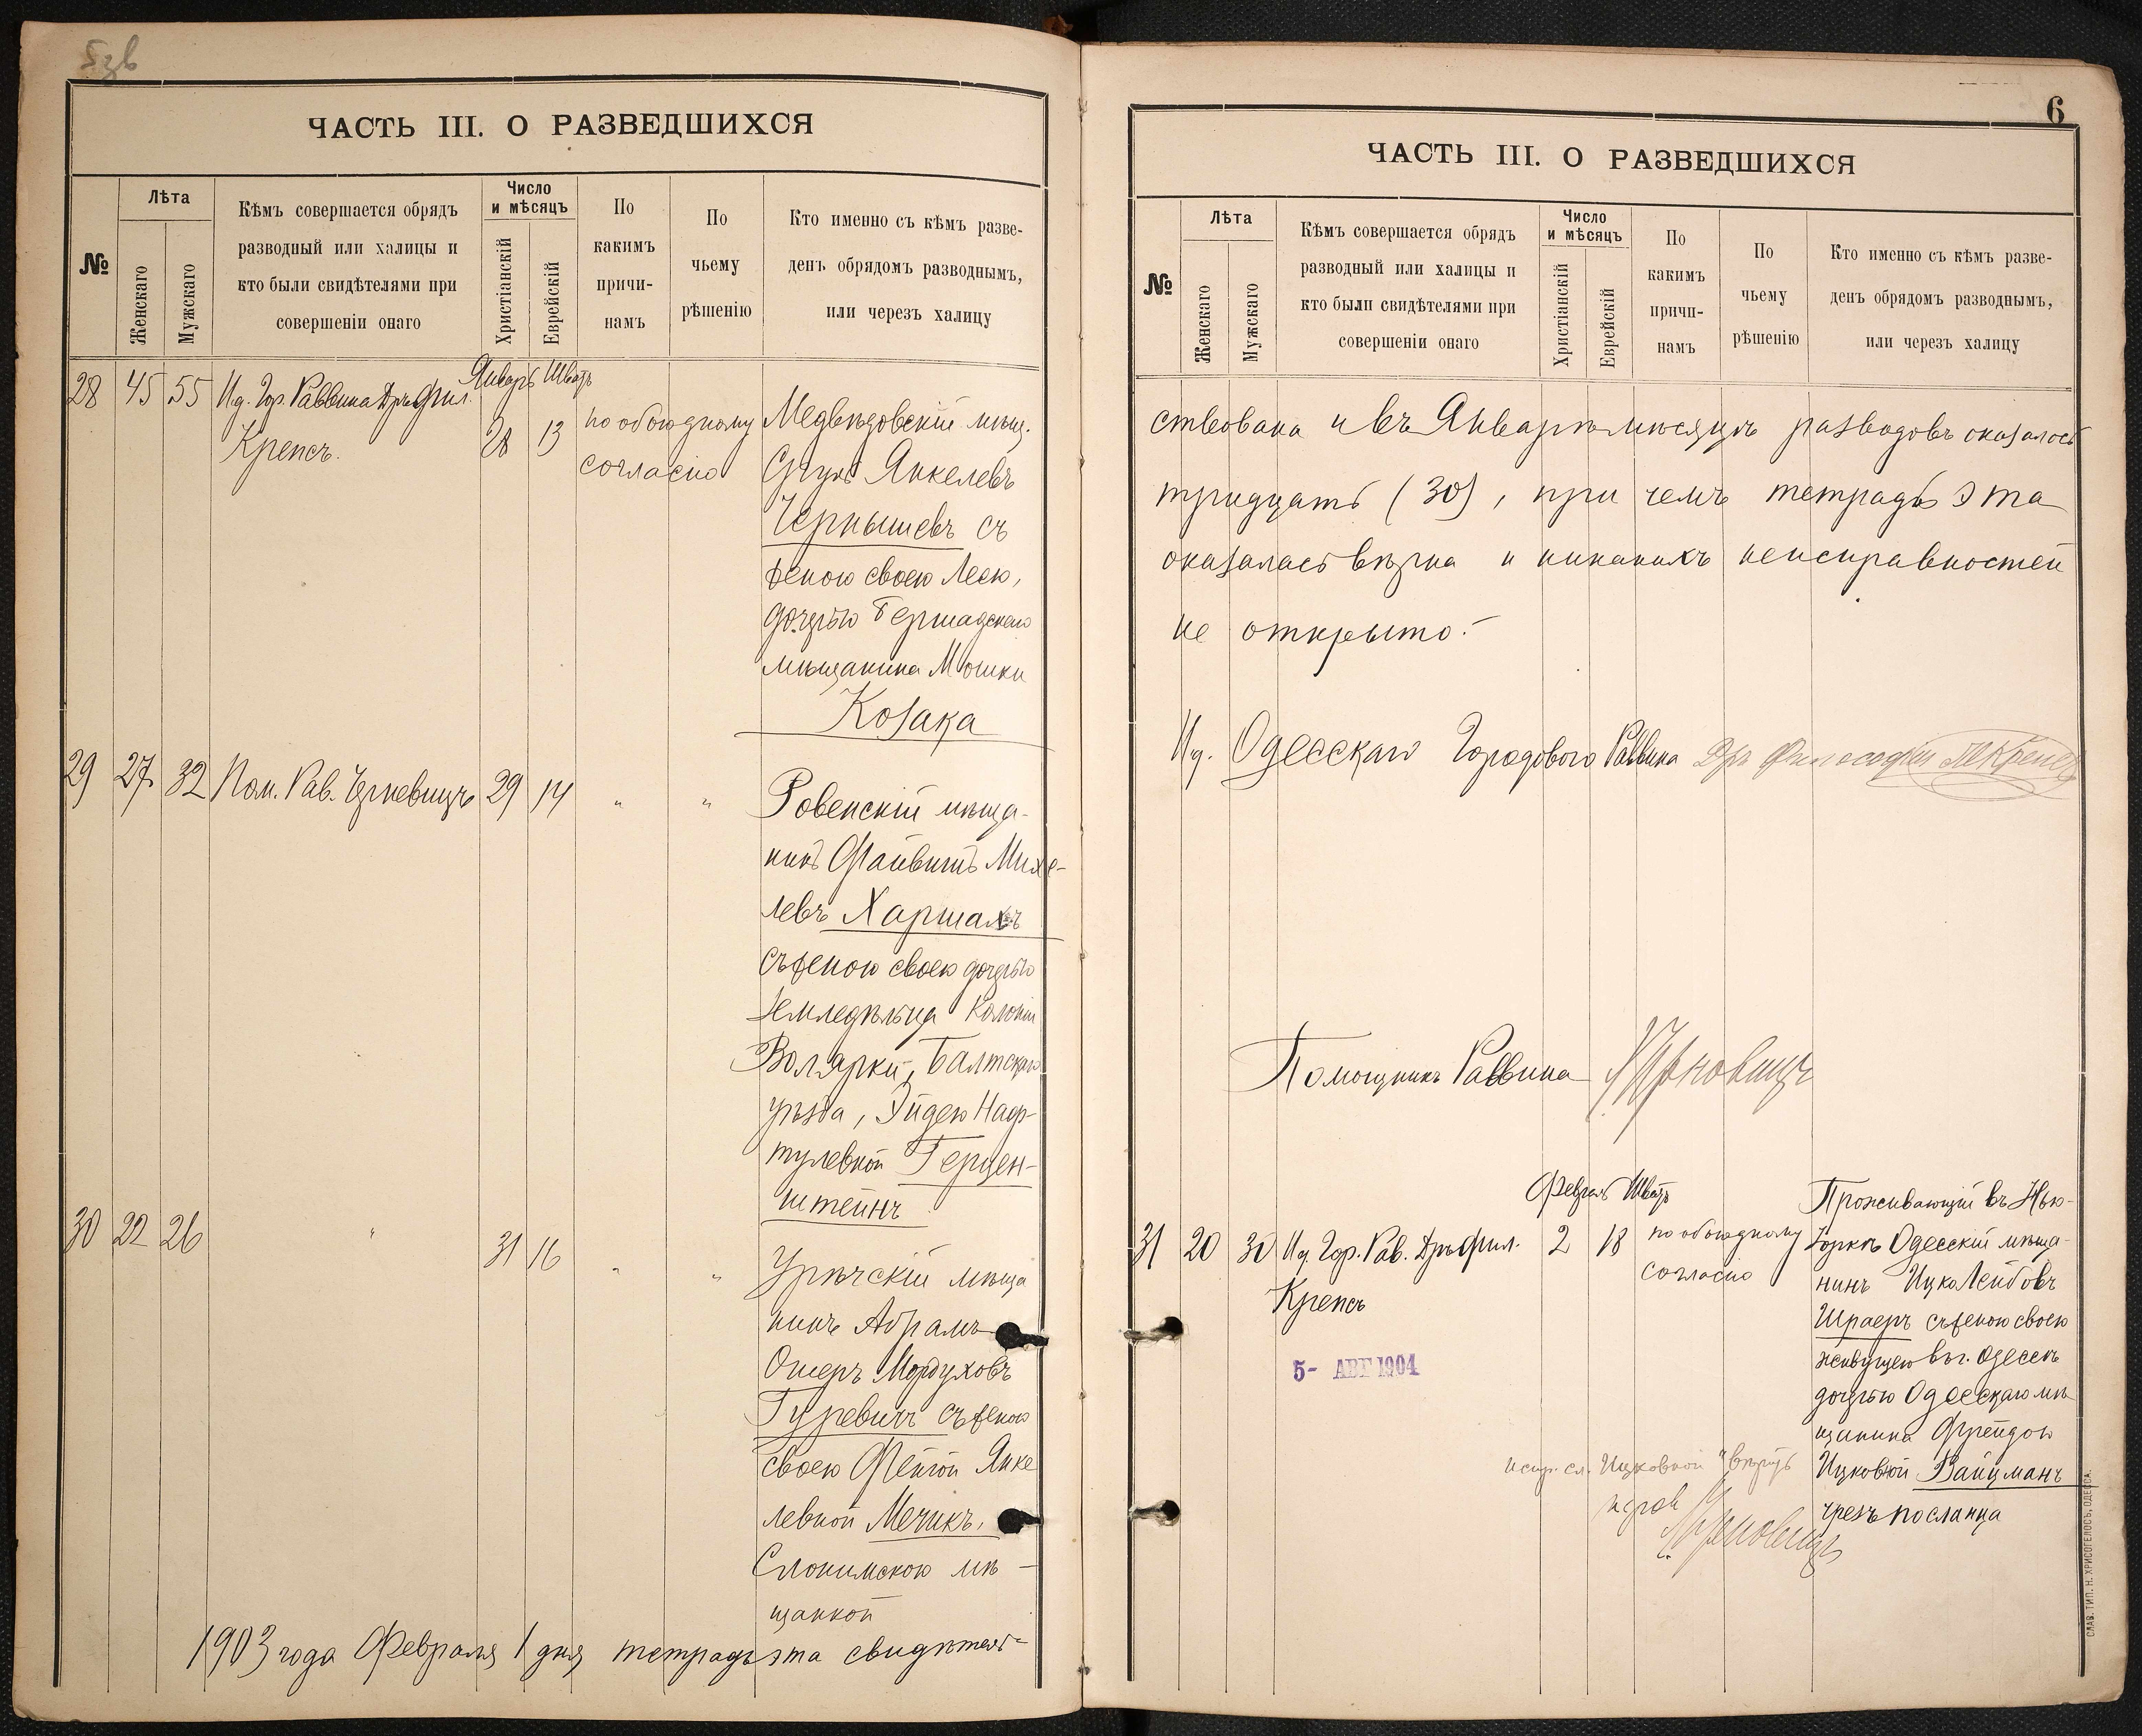 5зв
ЧАСТЬ III. О РАЗВЕДШИХСЯ
№
Лѣта
Женскаго
Мужскаго
Кѣмъ совершается обрядъ
разводный или халицы и
кто были свидѣтелями при
совершеніи онаго
Число
и мѣсяцъ
Христіанскій
Еврейскій
По
какимъ
причи-
намъ
По
чьему
рѣшенію
Кто именно съ кѣмъ разве-
денъ обрядомъ разводнымъ,
или черезъ халицу
Январь Шватъ
28 45 55 Ид. Гор. Раввина Дръ Фил.
Крепсъ.
28 13
по обоюдному
согласію
Медвѣдовскій мѣщ.
Сруль Янкелевъ
Чернышевъ съ
женою своею Леею,
дочерью Бершадскаго
мѣщанина Мошки
Козака
29 27 32 Пом. Рав. 29 14 " "
Ровенскій мѣща-
нинъ Файвишъ Михе-
левъ
съ женою своею дочерью
земледѣльца колоніи
Балтскаго
уѣзда, Эйдею Наф-
тулевной Герцен-
штейнъ
30 22 26 " 31 16 " "
мѣща
нинъ Абрамъ-
Ошеръ Мордуховъ
Гуревичъ съ женою
своею Фейгой Янке
левной Мечикъ,
Слонимскою мѣ-
щанкой
1903 года Февраля 1 дня тетрадь эта свидѣтель-
6
ЧАСТЬ III. О РАЗВЕДШИХСЯ
№
Лѣта
Женскаго
Мужскаго
Кѣмъ совершается обрядъ
разводный или халицы и
кто были свидѣтелями при
совершеніи онаго
Число
и мѣсяцъ
Христіанскій
Еврейскій
По
какимъ
причи-
намъ
По
чьему
рѣшенію
Кто именно съ кѣмъ разве-
денъ обрядомъ разводнымъ,
или черезъ халицу
ствована и въ Январѣ мѣсяцѣ разводовъ оказалось
тридцать (30), при чемъ тетрадь эта
оказалась вѣрна и никакихъ неисправностей
не открыто.-
Ид. Одесскаго Городового Раввина Дръ Философіи Крепсъ
Помощникъ Раввина
Февраль Шватъ
31 20 30 Ид. Гор. Рав. Дръ Фил.
Крепсъ
2 18
по обоюдному
согласію
Проживающій въ Нью-
Іоркѣ Одесскій мѣща-
нинъ Ицко Лейбовъ
Шраеръ съ женою своею
живущею въ г. Одессѣ
дочерью Одесскаго мѣ-
щанина Фрейдою
Ицковной Вайцманъ
чрезъ посланца
5- АВГ 1904
испр. сл. "Ицковной" вѣрить
СЛАВ. ТИП. Н. ХРИСОГЕЛОСЪ, ОДЕССА.